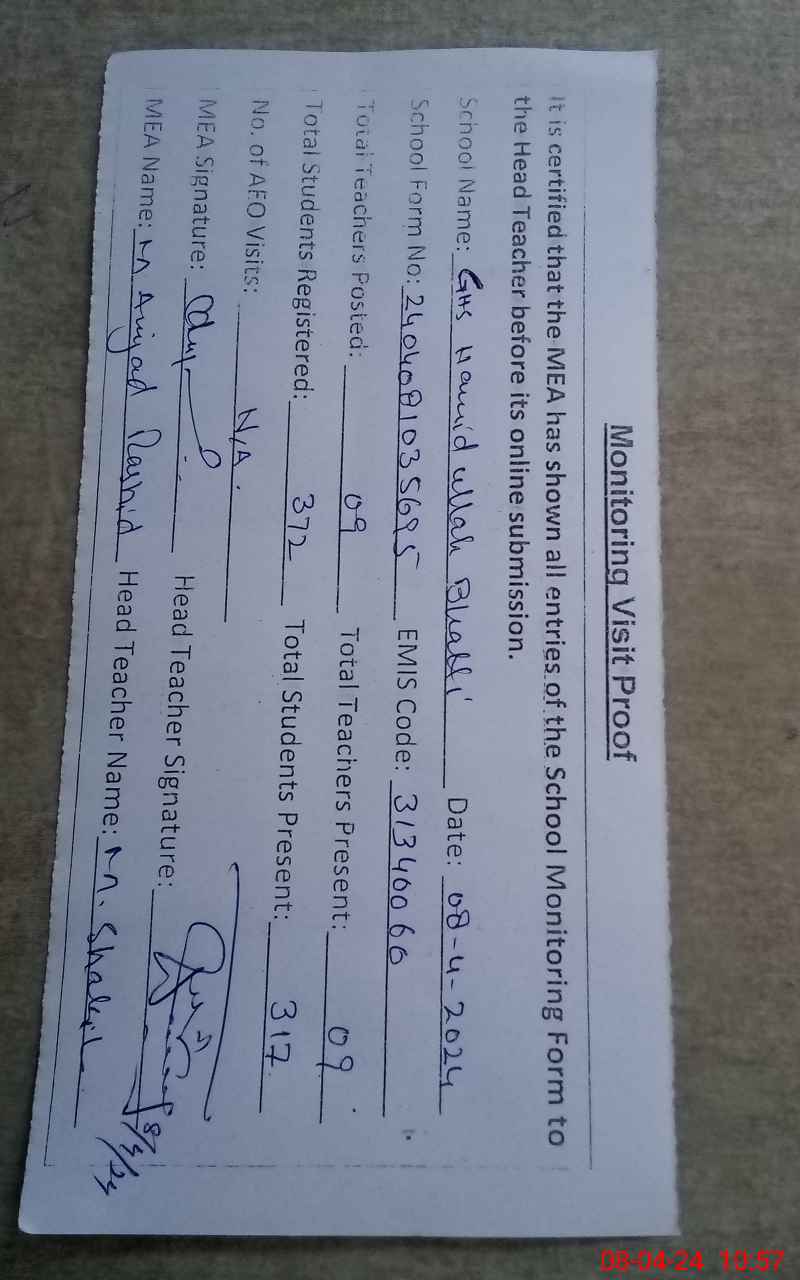 Monitoring Visit Proof
It is certified that the MEA has shown all entries of the School Monitoring Form to
the Head Teacher before its online submission.
School Name: GHS Hamid ullah Bhatti Date: 08-4-2024
School Form No: 2404081035695 EMIS Code: 31340060
Total Teachers Posted: 09 Total Teachers Present: 09
Total Students Registered: 372 Total Students Present: 317
No. of AEO Visits: N/A.
MEA Signature: Head Teacher Signature: 8/4/24
MEA Name: M Amjad Rashid Head Teacher Name: M. Shakil
08-04-24 10:57